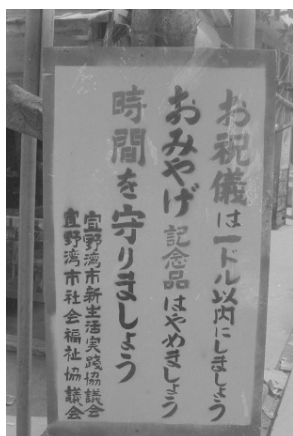 お祝儀は一ドル以内にしましょう
おみやげ記念品はやめましょう
時間を守りましょう
宜野湾市新生活実践協議会
宜野湾市社会福祉協議会